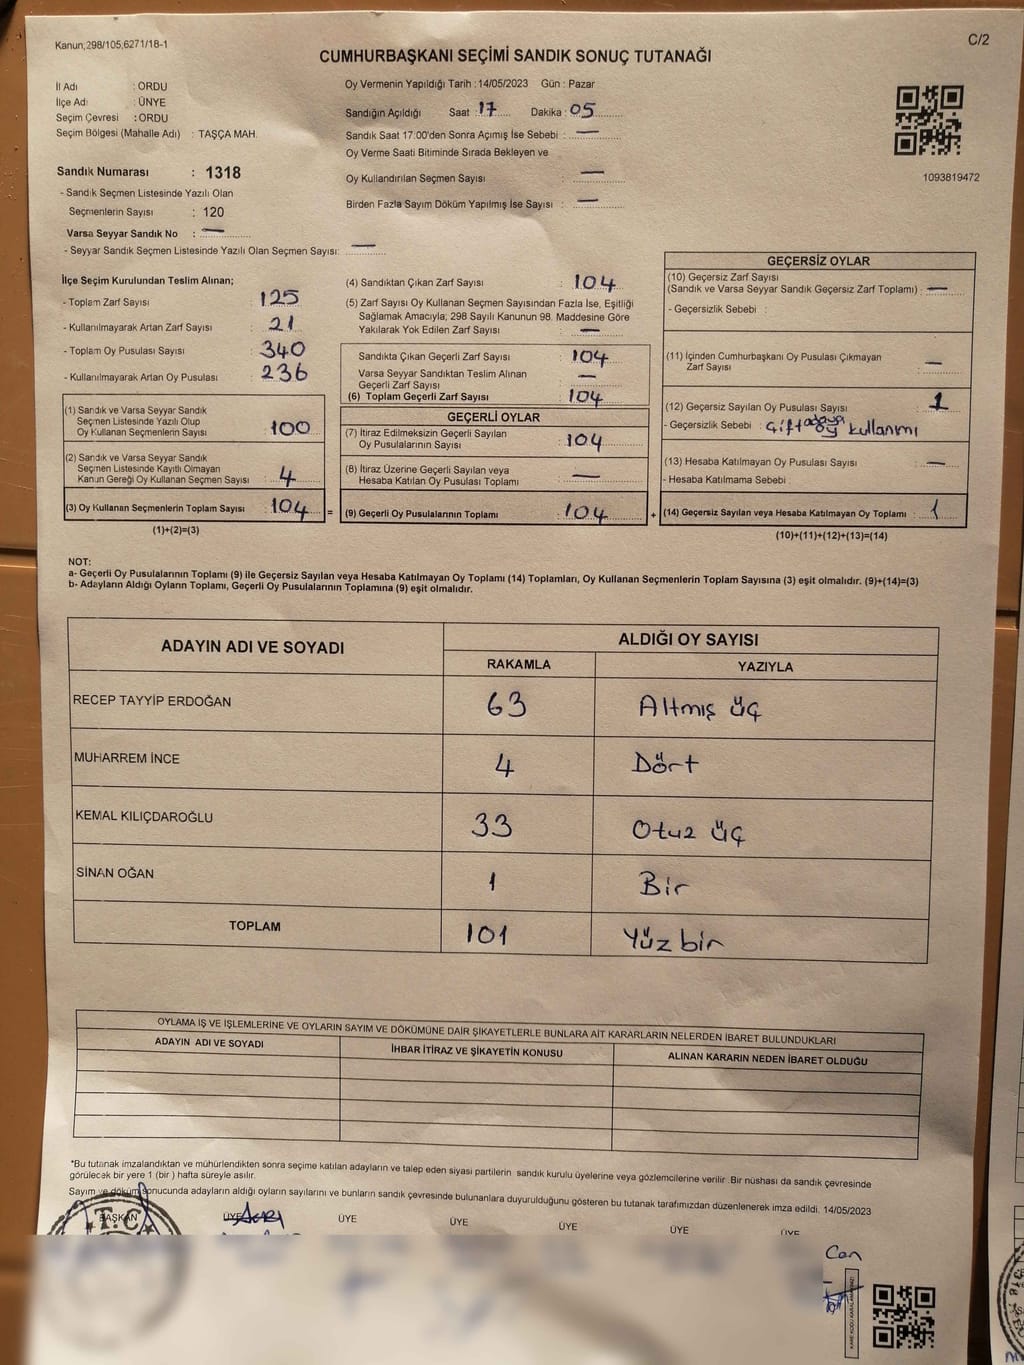 Kanun;298/105,6271/18-1
C/2
CUMHURBAŞKANI SEÇİMİ SANDIK SONUÇ TUTANAĞI
İl Adı : ORDU
İlçe Adı : ÜNYE
Seçim Çevresi : ORDU
Seçim Bölgesi (Mahalle Adı) : TAŞÇA MAH.
Oy Vermenin Yapıldığı Tarih : 14/05/2023 Gün : Pazar
Sandığın Açıldığı Saat : 17 Dakika : 05
Sandık Saat 17:00'den Sonra Açımış İse Sebebi : —
Oy Verme Saati Bitiminde Sırada Bekleyen ve
Oy Kullandırılan Seçmen Sayısı : —
Birden Fazla Sayım Döküm Yapılmış İse Sayısı : —
1093819472
Sandık Numarası : 1318
- Sandık Seçmen Listesinde Yazılı Olan
Seçmenlerin Sayısı : 120
Varsa Seyyar Sandık No : —
- Seyyar Sandık Seçmen Listesinde Yazılı Olan Seçmen Sayısı: —
İlçe Seçim Kurulundan Teslim Alınan;
- Toplam Zarf Sayısı : 125
- Kullanılmayarak Artan Zarf Sayısı : 21
- Toplam Oy Pusulası Sayısı : 340
- Kullanılmayarak Artan Oy Pusulası : 236
(1) Sandık ve Varsa Seyyar Sandık
Seçmen Listesinde Yazılı Olup
Oy Kullanan Seçmenlerin Sayısı : 100
(2) Sandık ve Varsa Seyyar Sandık
Seçmen Listesinde Kayıtlı Olmayan
Kanun Gereği Oy Kullanan Seçmen Sayısı : 4
(3) Oy Kullanan Seçmenlerin Toplam Sayısı : 104 =
(1)+(2)=(3)
(4) Sandıktan Çıkan Zarf Sayısı : 104
(5) Zarf Sayısı Oy Kullanan Seçmen Sayısından Fazla İse, Eşitliği
Sağlamak Amacıyla; 298 Sayılı Kanunun 98. Maddesine Göre
Yakılarak Yok Edilen Zarf Sayısı : —
Sandıkta Çıkan Geçerli Zarf Sayısı : 104
Varsa Seyyar Sandıktan Teslim Alınan
Geçerli Zarf Sayısı : —
(6) Toplam Geçerli Zarf Sayısı : 104
GEÇERLİ OYLAR
(7) İtiraz Edilmeksizin Geçerli Sayılan
Oy Pusulalarının Sayısı : 104
(8) İtiraz Üzerine Geçerli Sayılan veya
Hesaba Katılan Oy Pusulası Toplamı : —
(9) Geçerli Oy Pusulalarının Toplamı : 104 +
GEÇERSİZ OYLAR
(10) Geçersiz Zarf Sayısı
(Sandık ve Varsa Seyyar Sandık Geçersiz Zarf Toplamı) : —
- Geçersizlik Sebebi :
(11) İçinden Cumhurbaşkanı Oy Pusulası Çıkmayan
Zarf Sayısı : —
(12) Geçersiz Sayılan Oy Pusulası Sayısı : 1
- Geçersizlik Sebebi : Çift adaya oy kullanımı
(13) Hesaba Katılmayan Oy Pusulası Sayısı : —
- Hesaba Katılmama Sebebi :
(14) Geçersiz Sayılan veya Hesaba Katılmayan Oy Toplamı : 1
(10)+(11)+(12)+(13)=(14)
NOT:
a- Geçerli Oy Pusulalarının Toplamı (9) ile Geçersiz Sayılan veya Hesaba Katılmayan Oy Toplamı (14) Toplamları, Oy Kullanan Seçmenlerin Toplam Sayısına (3) eşit olmalıdır. (9)+(14)=(3)
b- Adayların Aldığı Oyların Toplamı, Geçerli Oy Pusulalarının Toplamına (9) eşit olmalıdır.
ADAYIN ADI VE SOYADI ALDIĞI OY SAYISI
RAKAMLA YAZIYLA
RECEP TAYYİP ERDOĞAN 63 Altmış üç
MUHARREM İNCE 4 Dört
KEMAL KILIÇDAROĞLU 33 Otuz üç
SİNAN OĞAN 1 Bir
TOPLAM 101 Yüz bir
OYLAMA İŞ VE İŞLEMLERİNE VE OYLARIN SAYIM VE DÖKÜMÜNE DAİR ŞİKAYETLERLE BUNLARA AİT KARARLARIN NELERDEN İBARET BULUNDUKLARI
ADAYIN ADI VE SOYADI İHBAR İTİRAZ VE ŞİKAYETİN KONUSU ALINAN KARARIN NEDEN İBARET OLDUĞU
*Bu tutanak imzalandıktan ve mühürlendikten sonra seçime katılan adayların ve talep eden siyasi partilerin sandık kurulu üyelerine veya gözlemcilerine verilir. Bir nüshası da sandık çevresinde
görülecek bir yere 1 (bir) hafta süreyle asılır.
Sayım ve döküm sonucunda adayların aldığı oyların sayılarını ve bunların sandık çevresinde bulunanlara duyurulduğunu gösteren bu tutanak tarafımızdan düzenlenerek imza edildi. 14/05/2023
BAŞKAN ÜYE ÜYE ÜYE ÜYE ÜYE ÜYE
T.C.
Can